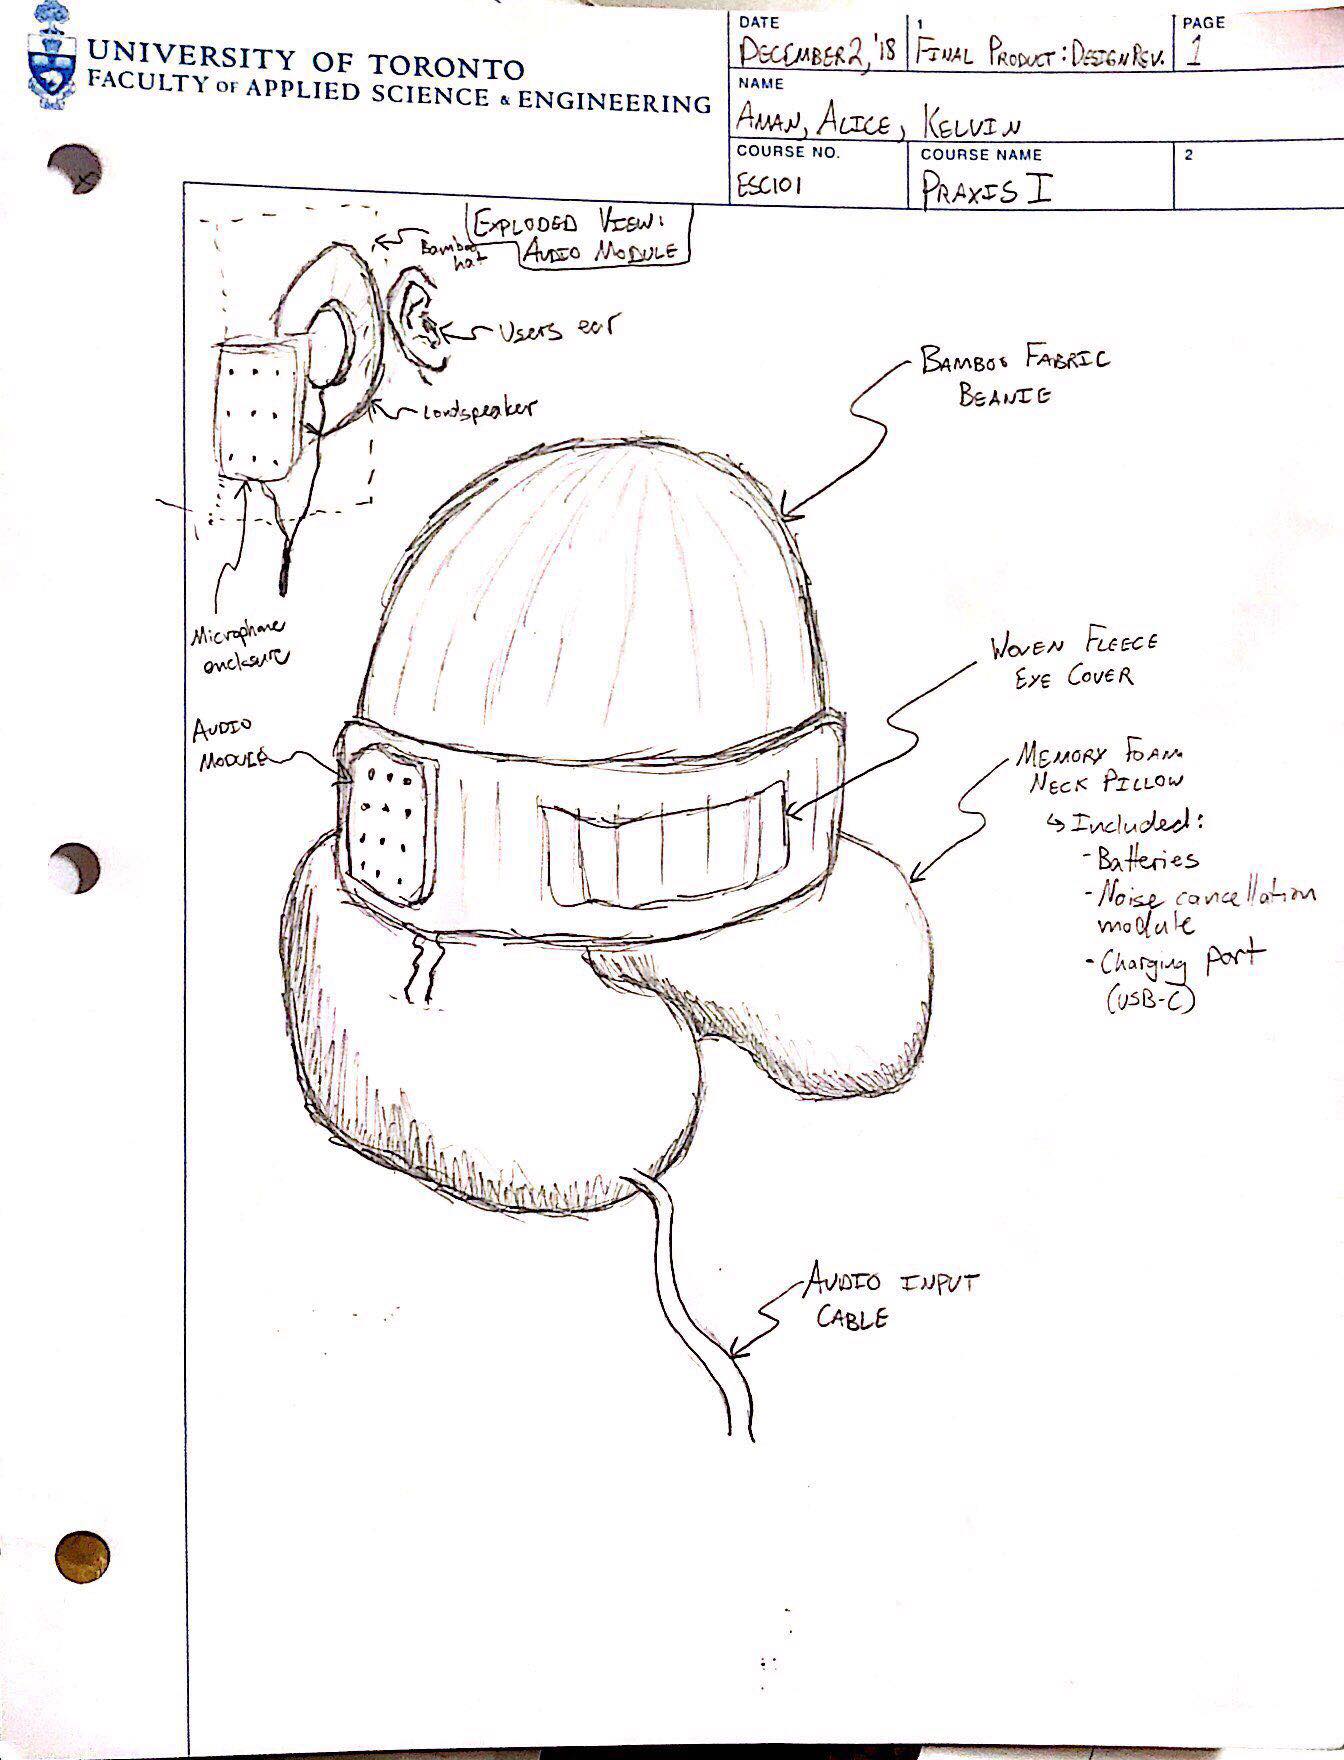 UNIVERSITY OF TORONTO
FACULTY OF APPLIED SCIENCE & ENGINEERING
DATE
DECEMBER 2, '18
1
FINAL PRODUCT: DESIGN REV.
PAGE
1
NAME
AMAN, ALICE, KELVIN
COURSE NO.
ESC101
COURSE NAME
PRAXIS I
2
EXPLODED VIEW:
AUDIO MODULE
Bamboo
hat
Users ear
Loudspeaker
Microphone
enclosure
BAMBOO FABRIC
BEANIE
WOVEN FLEECE
EYE COVER
AUDIO
MODULE
MEMORY FOAM
NECK PILLOW
↳ Included:
- Batteries
- Noise cancellation
module
- Charging port
(USB-C)
AUDIO INPUT
CABLE